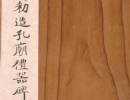 勑造孔廟禮器碑